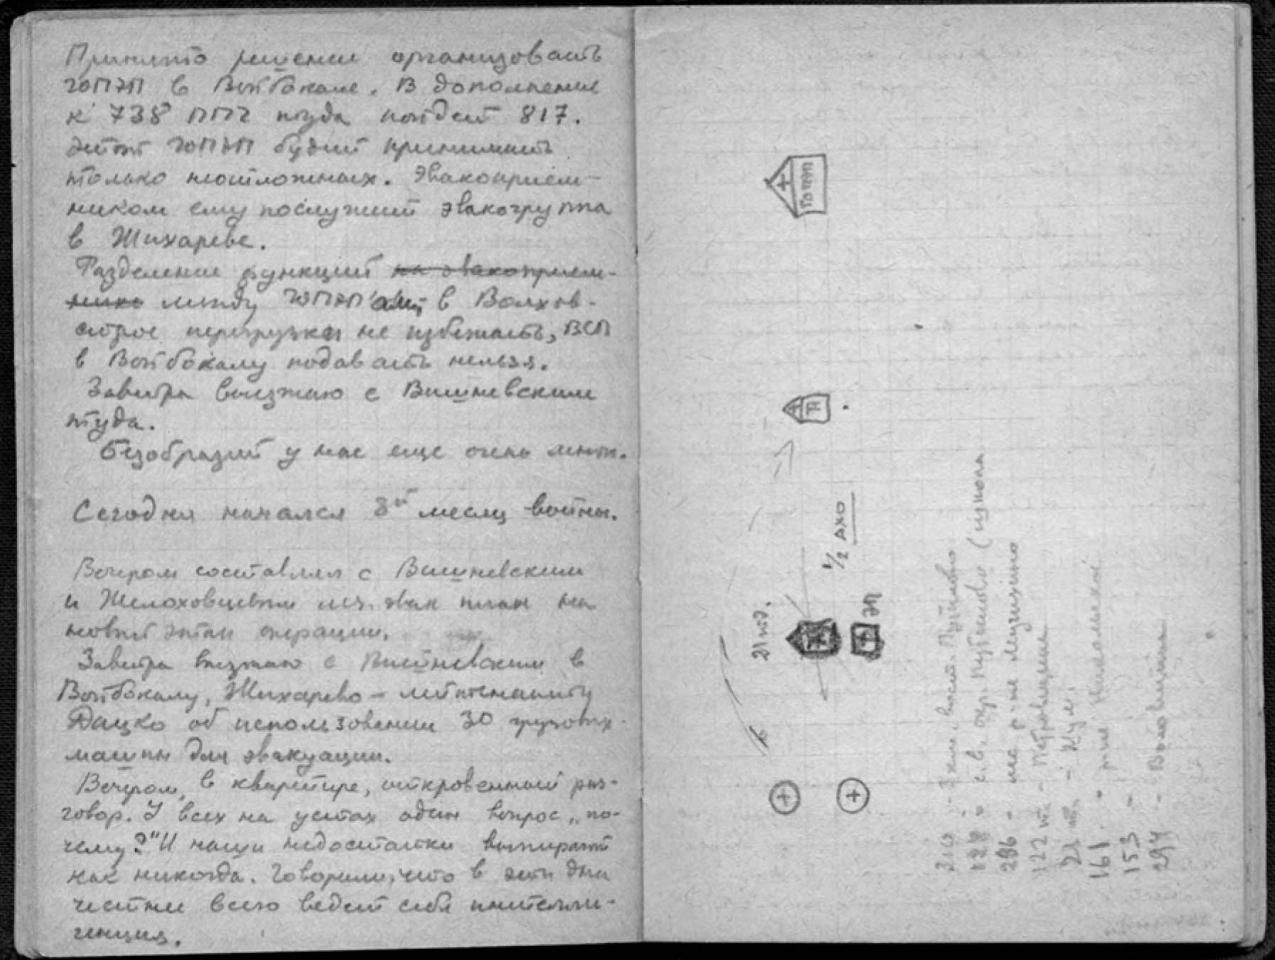 Принято решение организовать
ГОПЭП в Войбокале. В дополнение
к 738 ППГ туда пойдет 817.
Этот ГОПЭП будет принимать
только неотложных. Эвакоприем-
ником ему послужит эвакогруппа
в Жихареве.
Разделение функций на эвакоприем-
ника между ГОПЭП'ами, в Волхов-
строе перегрузки не избежать, ВСП
в Войбокалу подавать нельзя.
Завтра выезжаю с Вишневским
туда.
Безобразий у нас еще очень много.
Сегодня начался 8й месяц войны.
Вечером составлял с Вишневским
и Желоховцевым эвак план на
новый этап операции.
Завтра выезжаю с Вишневским в
Войбокалу, Жихарево – лейтенанту
Дацко об использовании 30 грузовых
машин для эвакуации.
Вечером, в квартире, откровенный раз-
говор. У всех на устах один вопрос „по-
чему?" И наши недостатки выпирают
как никогда. Говорили, что в эти дни
честнее всего ведет себя интелли-
генция.
ГОПЭП
1/2 АХО
21 тд.
ЭП
128
286
122 тп
21 тп
161
153
294